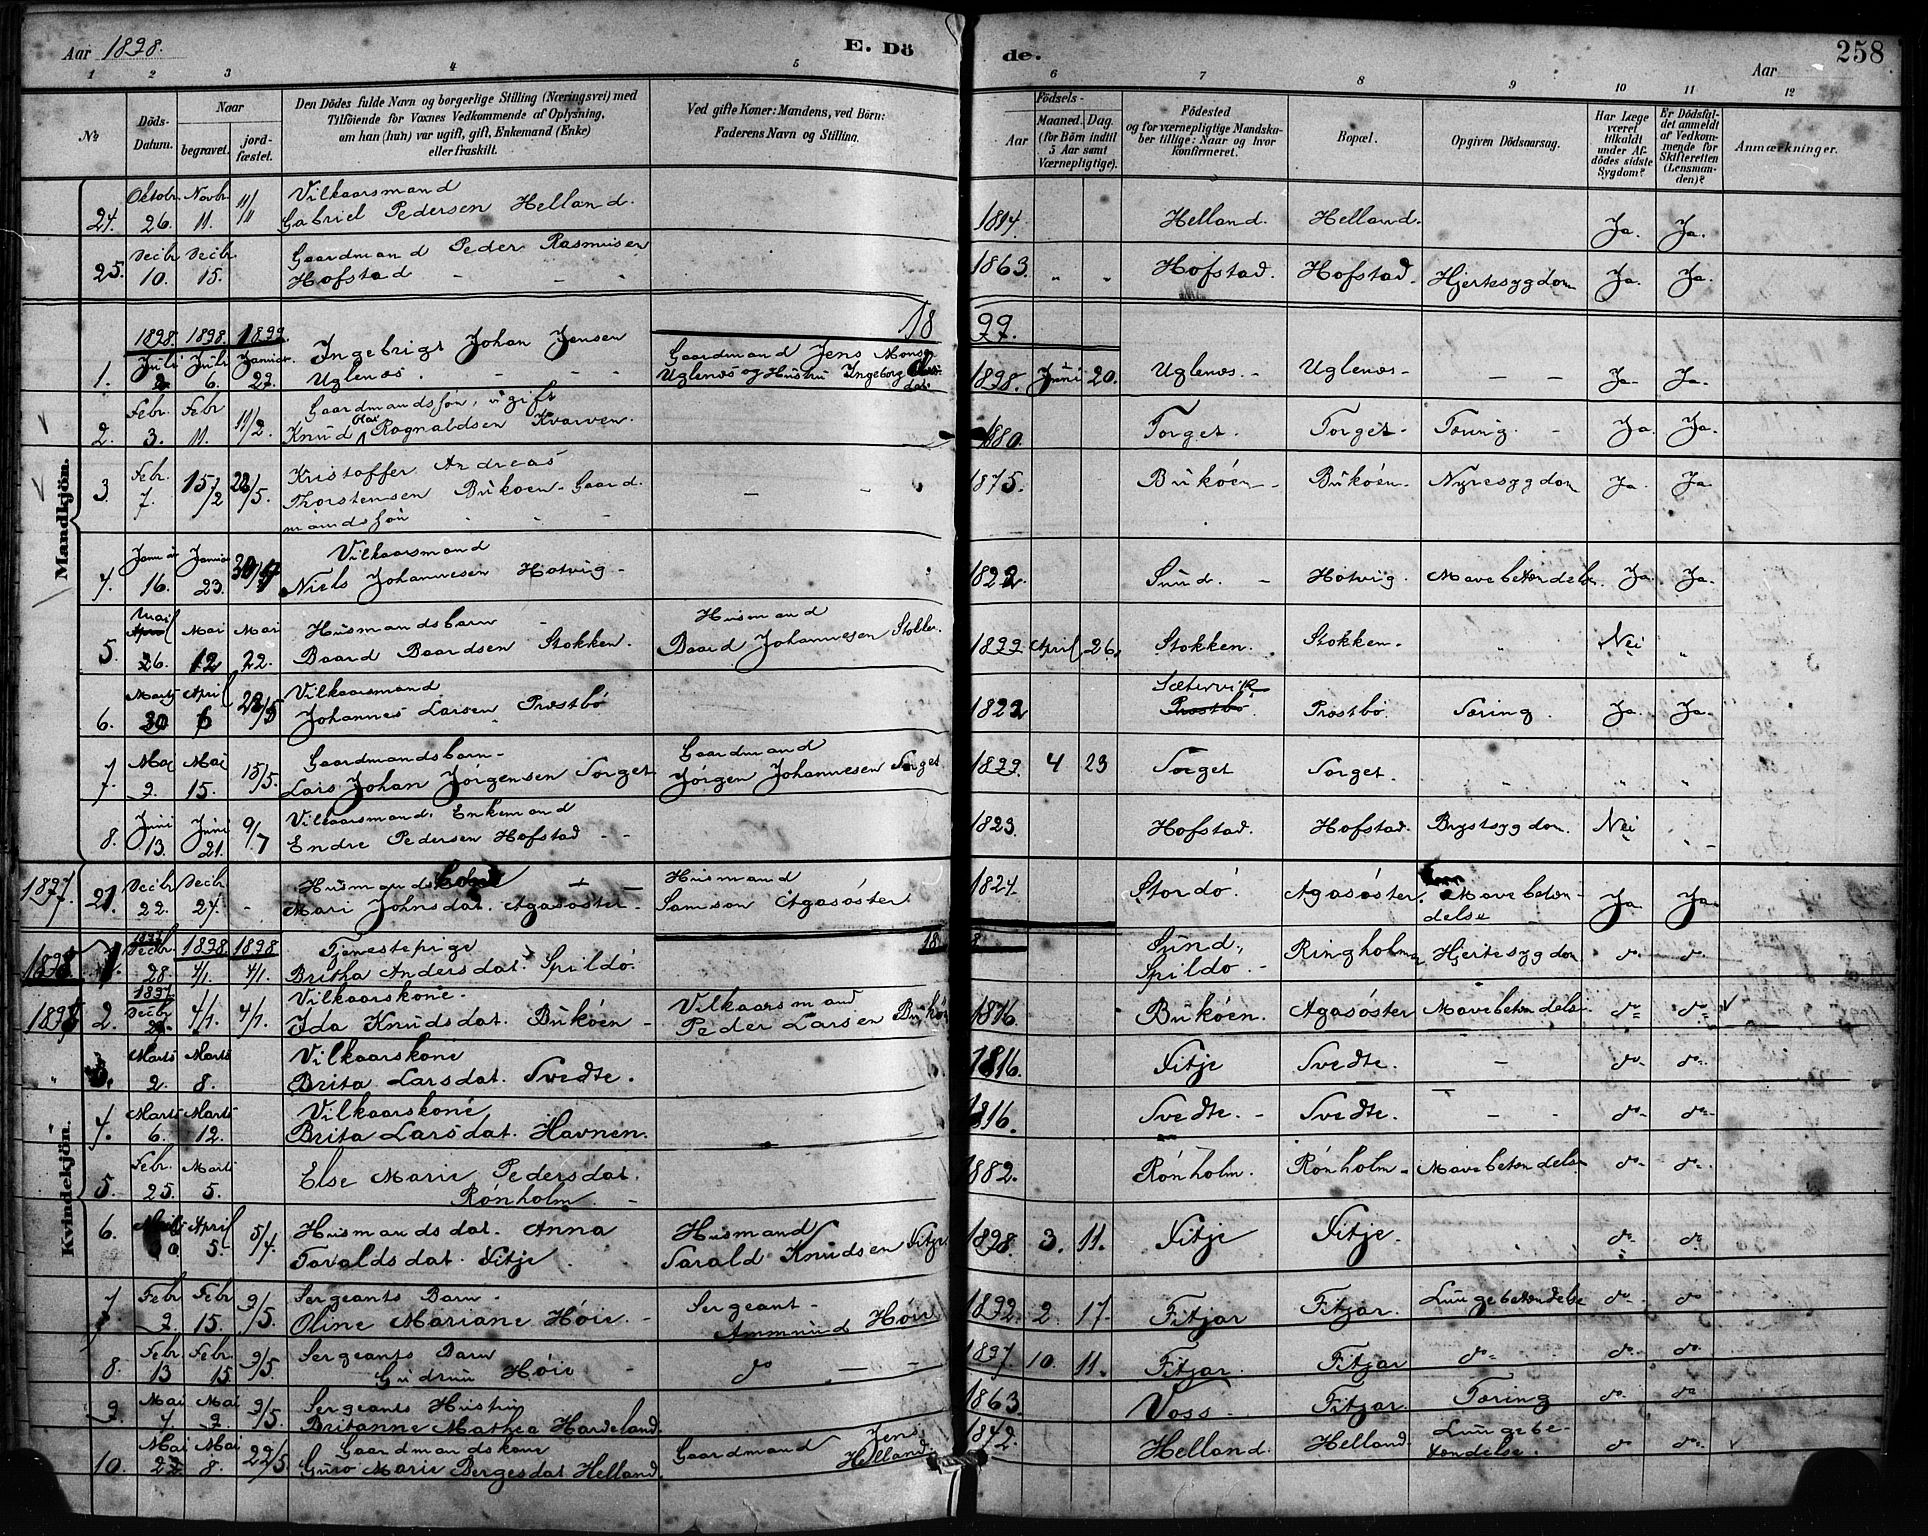 Aar 1898.
E. Dö
de.
Aar
258
1 2 3 4 5 6 7 8 9 10 11 12
No.
Döds-Datum.
Naar
begravet. jord-fæstet.
Den Dödes fulde Navn og borgerlige Stilling (Næringsvei) med
Tilföiende for Voxnes Vedkommende af Oplysning,
om han (hun) var ugift, gift, Enkemand (Enke)
eller fraskilt.
Ved gifte Koner: Mandens, ved Börn:
Faderens Navn og Stilling.
Födsels-
Aar Maaned. Dag.
(for Börn indtil
5 Aar samt
Værnepligtige).
Födested
og for værnepligtige Mandska-
ber tillige: Naar og hvor
konfirmeret.
Bopæl.
Opgiven Dödsaarsag.
Har Læge
været
tilkaldt
under Af-
dödes sidste
Sygdom?
Er Dödsfal-
det anmeldt
af Vedkom-
mende for
Skifteretten
(Lensman-
den)?
Anmærkninger.
Mandkjön.
Oktobr Novbr 11/11 Vilkaarsmand
24. 26. 11. Gabriel Pedersen Helland. 1814. Helland. Helland. Ja. Ja.
Decbr Decbr Gaardmand Peder Rasmusen
25. 10. 15. Hofstad 1863. Hofstad. Hofstad. Hjertesygdom Ja. Ja.
1899.
1898. 1898. 1899.
Juli Juli Januar Ingebrigt Johan Jensen Gaardmand Jens Monsen
1. 6. 29. Uglenæs. Uglenæs og Hustru Ingeborg 1898. Juni 20. Uglenæs. Uglenæs Ja. Ja.
Febr. Febr 11/2. Gaardmandssøn, ugift
2. 3. 11. Knud Olai Ragnaldsen Kvarven. 1880. Torget. Torget. Tæring. Ja. Ja.
Febr. 15/2 22/5. Kristoffer Andreas
3. 7. Thorstensen Bukøen Gaard- 1875. Bukøen Bukøen Nyresygdom Ja. Ja.
mandssøn
Januar Januar Vilkaarsmand
4. 16. 23. Niels Johannesen Hotvig 1822. Sund. Hotvig. Mavebetændelse. Ja. Ja.
Mai April Mai Mai Husmandsbarn Husmand
5. 26. 12 22. Baard Baardsen Stokken. Baard Johannesen Stokken. 1899 April 26. Stokken. Stokken. Nei
Marts April 22/5 Vilkaarsmand Sætervik
6. 30 6 Johannes Larsen Præstbø 1822 Præstbø. Præstbø. Tæring. Ja. Ja.
Mai Mai 15/5. Gaardmandsbarn Gaardmand
7. 9. 15. Lars Johan Jørgensen Torget Jørgen Johannesen Torget 1899. 4 23 Torget Torget.
Juni Juni 9/7 Vilkaarsmand, Enkemand
8. 13. 21. Endre Pedersen Hofstad 1823. Hofstad. Hofstad. Brystsygdom. Nei
Kvindekjön.
1897. Decbr Decbr Husmandskone Husmand
21. 22. 27. Mari Johnsdat. Agasøster Samson Agasøster. 1824. Stordø. Agasøster. Mavebetæn-
delse Ja. Ja.
1898. Decbr. 1898. 1898 Tjenestepige Sund,
1. 28. 4/1. 4/1. Britha Andersdat. Spildø. Spildø. Ringholmen Hjertesygdom do do
1898 1897. Decbr 4/1. 4/1. Vilkaarskone. Vilkaarsmand
2. Ida Knudsdat. Bukøen Peder Larsen Bukøen 1816. Bukøen. Agasøster Mavebetændelse do do
Marts Marts Vilkaarskone
3. 2. 8. Brita Larsdat. Tvedte. 1816. Fitje Tvedte. do do
Marts Marts Vilkaarskone
4. 6. 12. Brita Larsdat. Havnen. 1816. Tvedte. Tvedte. do do
Febr. Marts Else Marie Pedersdat.
5. 25. 5. Rønholm 1882. Rønholm. Rønholm Mavebetændelse do do
April 5/4. Husmandsdat. Anna Husmand
6. 5. Torvaldsdat. Fitje Torald Knudsen Fitje 1898. 3. 11. Fitje Fitje. do do
Febr Febr 9/5. Sergeants Barn Sergeant
7. 9. 15. Oline Mariane Høie. Ammund Høie 1892. 2. 17. Fitjar Fitjar. Lungebetændelse do do
Febr Febr. 9/5. Sergeants Barn
8. 13 15. Gudrun Høie do 1897. 10. 11. Fitjar Fitjar do do do
Mai Mai 9/5. Sergeants Hustru
9. 4 9. Britanne Mathea Hardeland. 1863. Voss Fitjar. Tæring do do
Mai Mai 22/5. Gaardmandskone Gaardmand Jens
10. 8. Guro Marie Børgesdat Helland. Helland. 1842. Helland. Helland Lungebe-
tændelse. do do